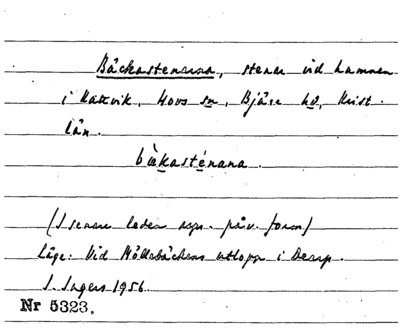 Bäckastenarna, stenar vid hamnen
i Kattvik, Hovs sn, Bjäre hd, Krist.
län.
bækasténana.
(I senare leden uppr. påv. form)
Läge: Vid Möllebäckens utlopp i
I. Ingers 1956
Nr 5323.